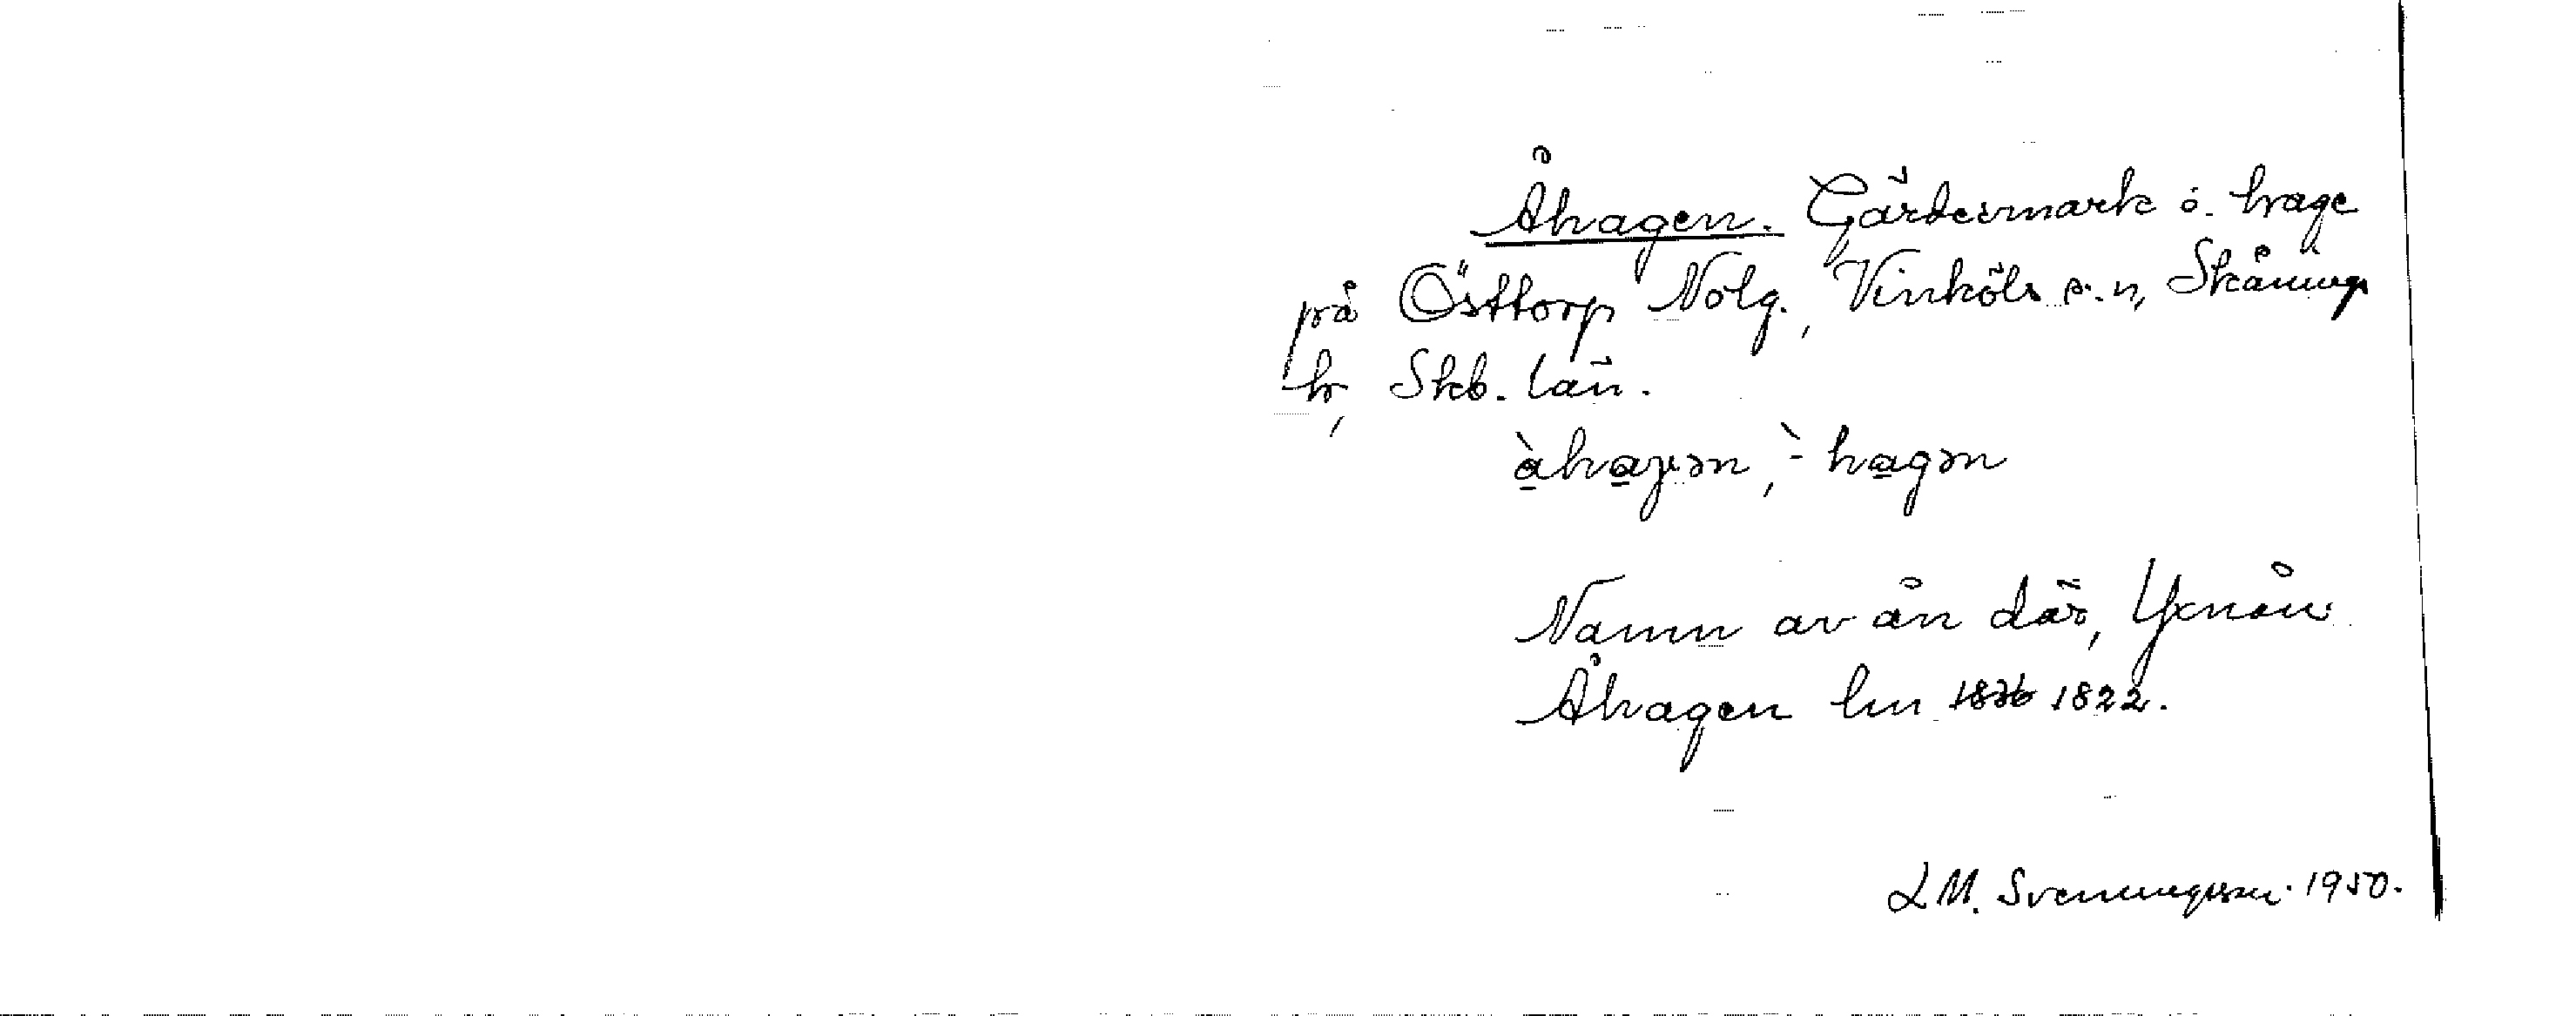 Åhagen. Gärdesmark o. hage
på Östtorp Nolg., Vinköls s.n, Skånings
h, Skb. län.
àhaγən, - hagən
Namn av ån där, Yxnån
Åhagen lm 1822.
L M. Svenungsson. 1950.